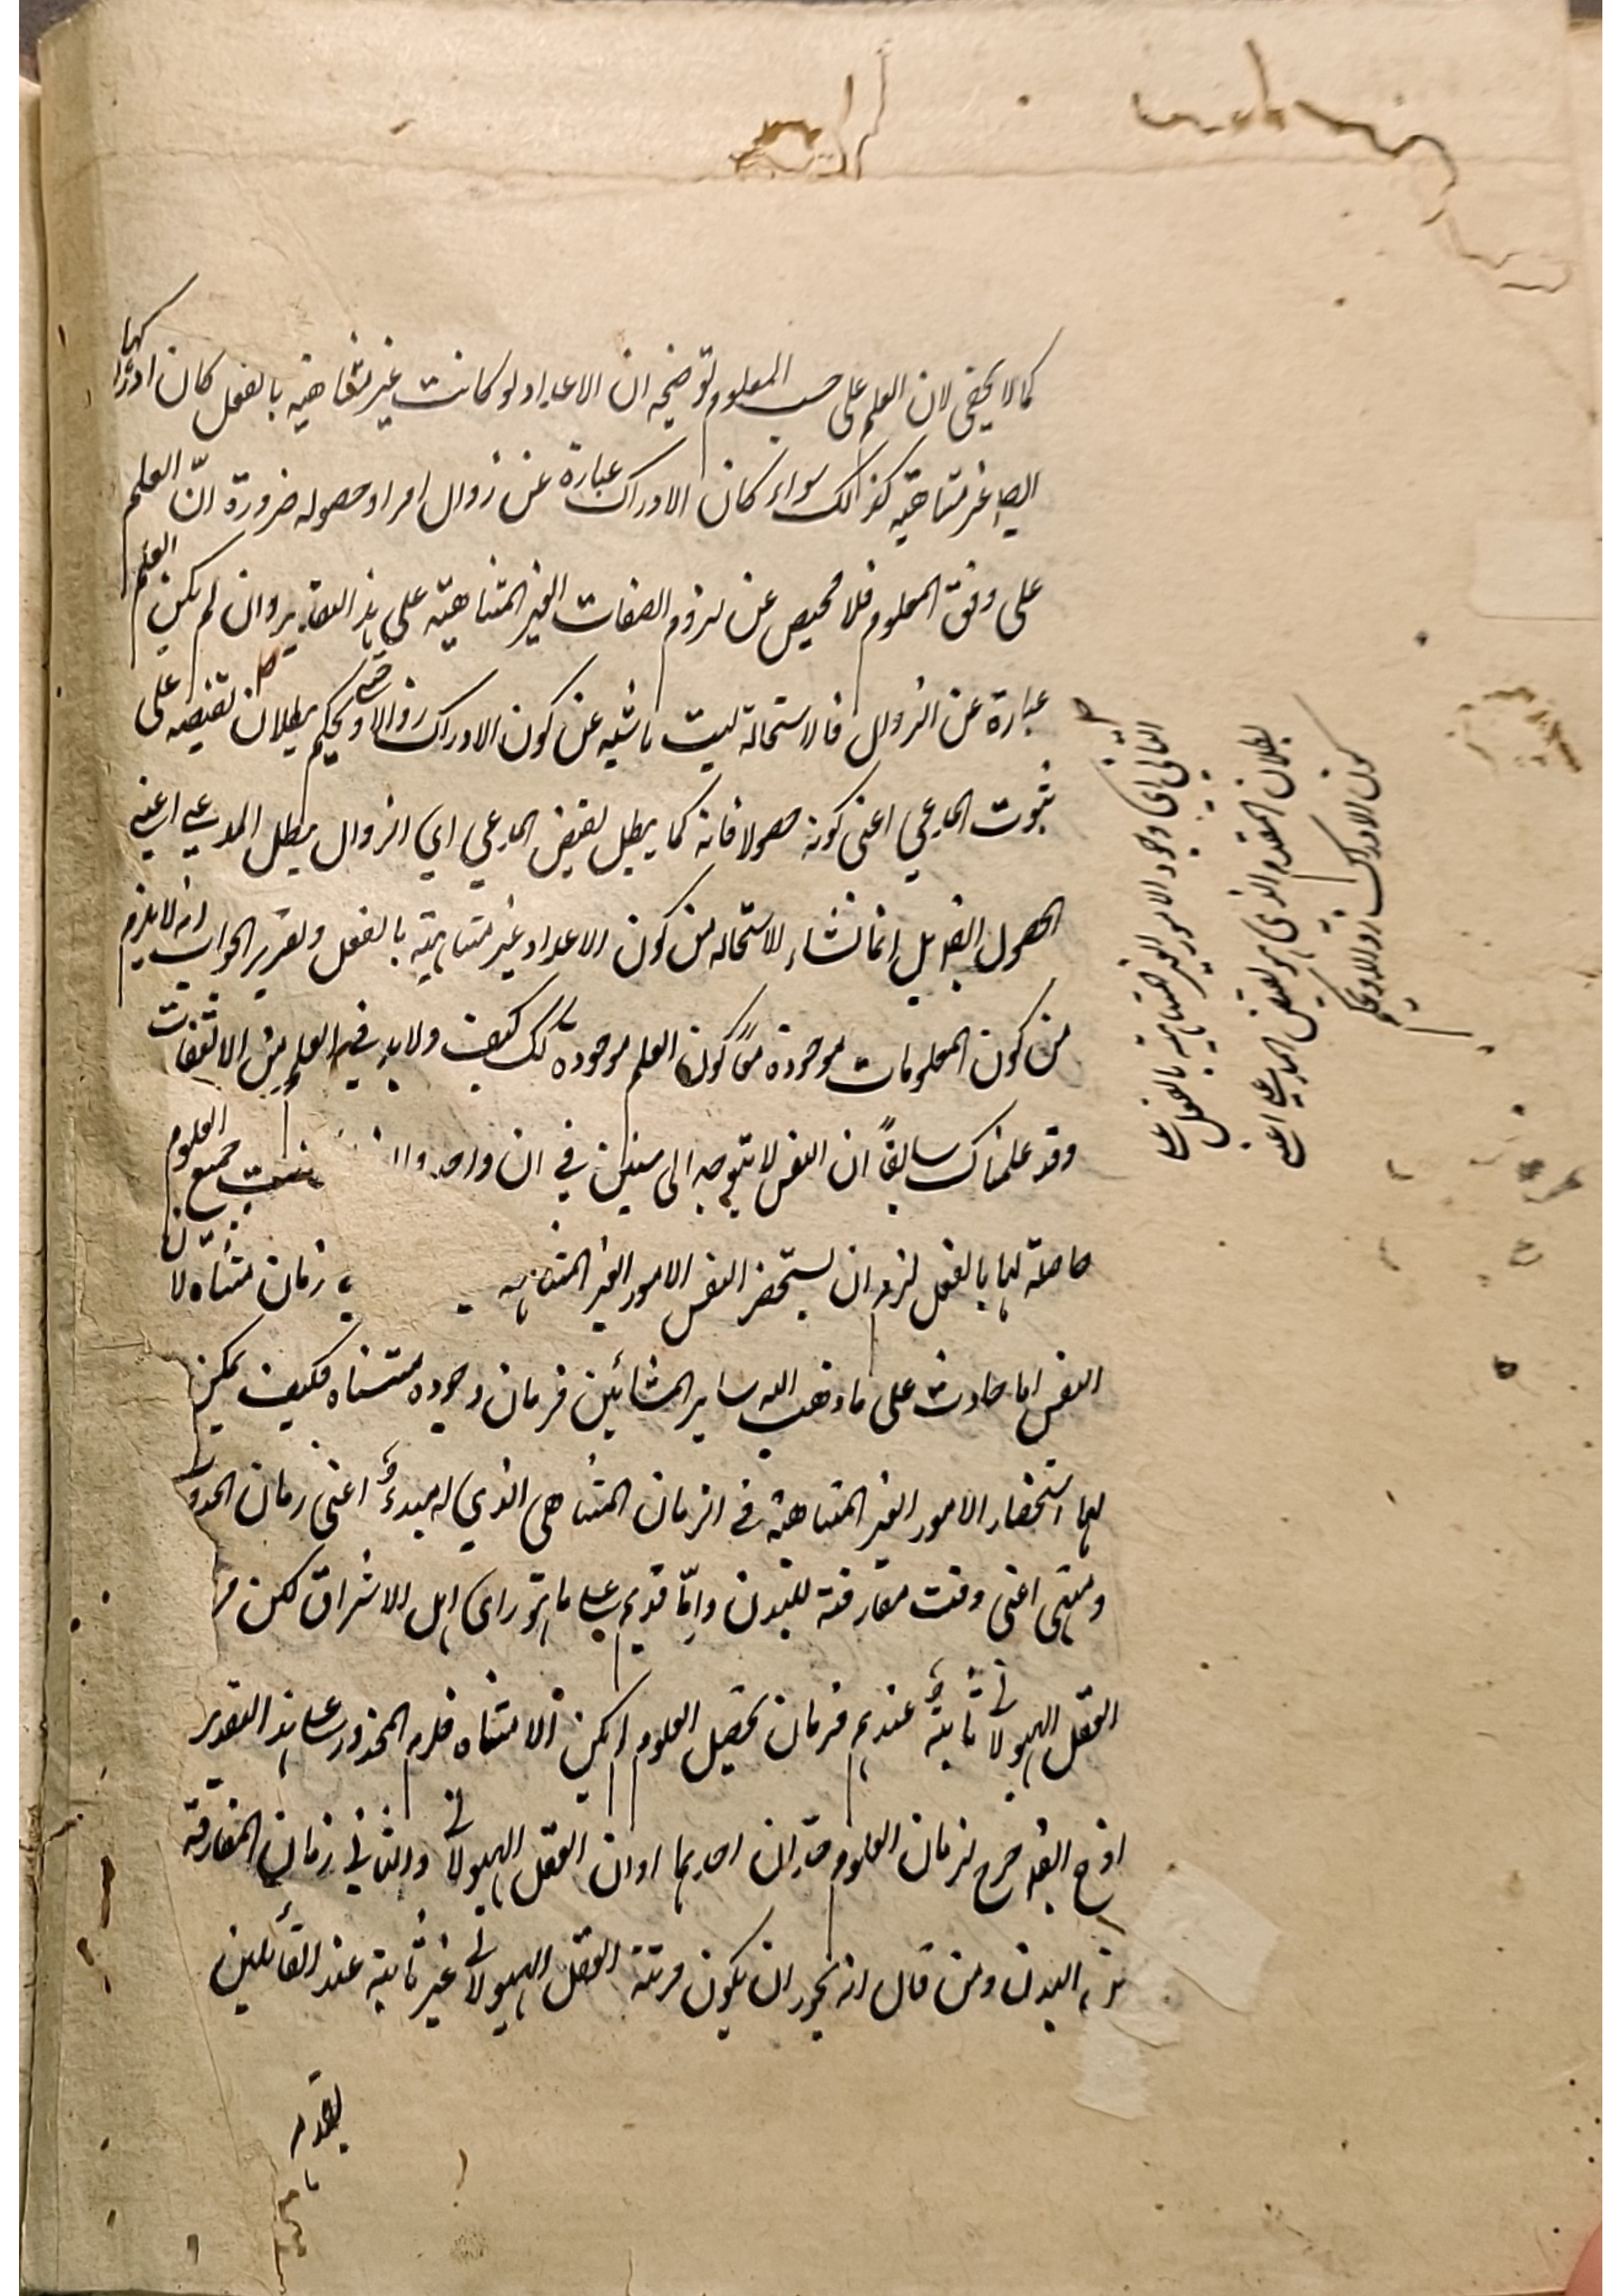 كما لا يخفى لان العلم على حسب المعلوم توضيحه ان الاعداد لو كانت غير متناهية بالفعل كان ادراكها
ايضا غير متناهية كذالك سواء كان الادراك عبارة عن زوال امر او حصوله ضرورة انّ العلم
على وفق المعلوم فلا محيص عن لزوم الصفات الغير المتناهية على هذا التقدير وان لم يكن العلم
عبارة عن الزوال فالاستحالة ليست ناشيه عن كون الادراك زوالا حتى ويحكم بطلان نقيضه على
ثبوت المدعي اعنى كونه حصولا فانه كما يبطل نقيض المدعي اي الزوال يبطل المدعي اعني
الحصول ايضا بل انما نشاء الاستحاله من كون الاعداد غير متناهية بالفعل وتقرير الجواب انه لا يلزم
من كون المعلومات موجودة معًا كون العلم موجوده كذلك كيف ولا بد في العلم من الالتفات
وقد علمناك سابقًا ان النفس لا يتوجه الى شيئين في ان واحد جميع العلوم
حاصلة لها بالفعل لزم ان يستحضر النفس الامور الغير المتناهيه زمان متناه لان
النفس اما حادث على ما ذهب اليه ساير المشائين فزمان وجوده متناه فكيف يمكن
لها استحضار الامور الغير المتناهية في الزمان المتناهى الذي له مبدء اعنى زمان الحدو
ومنتهى اعنى وقت مفارقته للبدن وامّا قديم على ما هو راى اهل الاشراق لكن
العقل الهيولانى ثابتة عندهم فزمان تحصيل العلوم لم يكن الا متناه فلزم المحذور على هذا التقدير
اذ ح ايضا خرج لزمان العلوم حدان احدهما اوان العقل الهيولانى والثانى زمان المفارقة
البدن ومن قال انه يجوز ان يكون مرتبة العقل الهيولانى غير ثابتة عند القائلين
بقدم
التالى اى وجود الامور الغير المتناهية بالفعل على
بطلان المقدم الذى هو نقيض المدعى اعنى
كون الادراك زوالا ويحكم